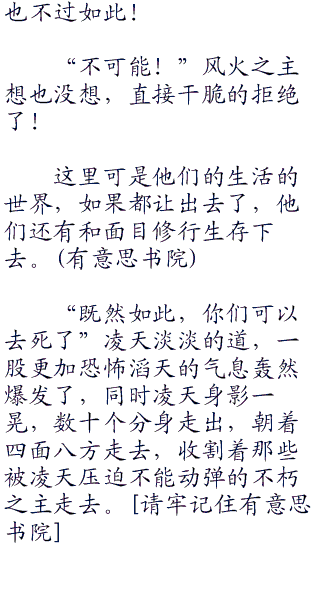 也不过如此！
“不可能！”风火之主
想也没想，直接干脆的拒绝
了！
这里可是他们的生活的
世界，如果都让出去了，他
们还有和面目修行生存下
去。(有意思书院)
“既然如此，你们可以
去死了”凌天淡淡的道，一
股更加恐怖滔天的气息轰然
爆发了，同时凌天身影一
晃，数十个分身走出，朝着
四面八方走去，收割着那些
被凌天压迫不能动弹的不朽
之主走去。[请牢记住有意思
书院]